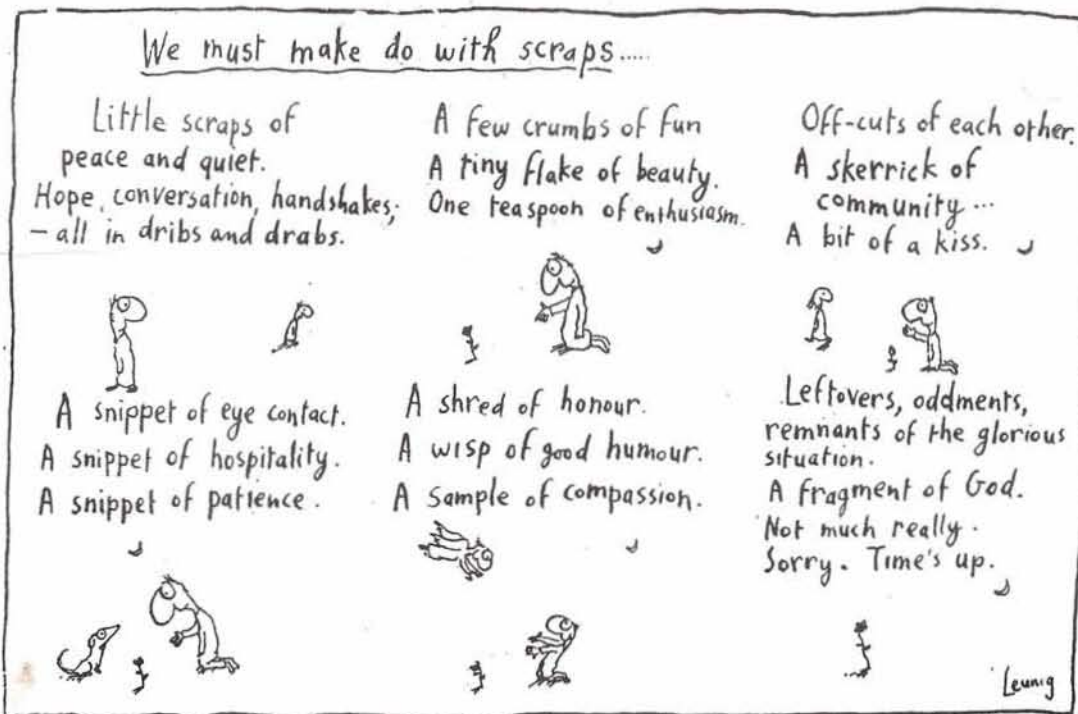 We must make do with scraps.....
Little scraps of
peace and quiet.
Hope, conversation, handshakes;
– all in dribs and drabs.
A few crumbs of fun
A tiny flake of beauty.
One teaspoon of enthusiasm.
Off-cuts of each other.
A skerrick of
community...
A bit of a kiss.
A snippet of eye contact.
A snippet of hospitality.
A snippet of patience.
A shred of honour.
A wisp of good humour.
A sample of compassion.
Leftovers, oddments,
remnants of the glorious
situation.
A fragment of God.
Not much really.
Sorry. Time's up.
Leunig